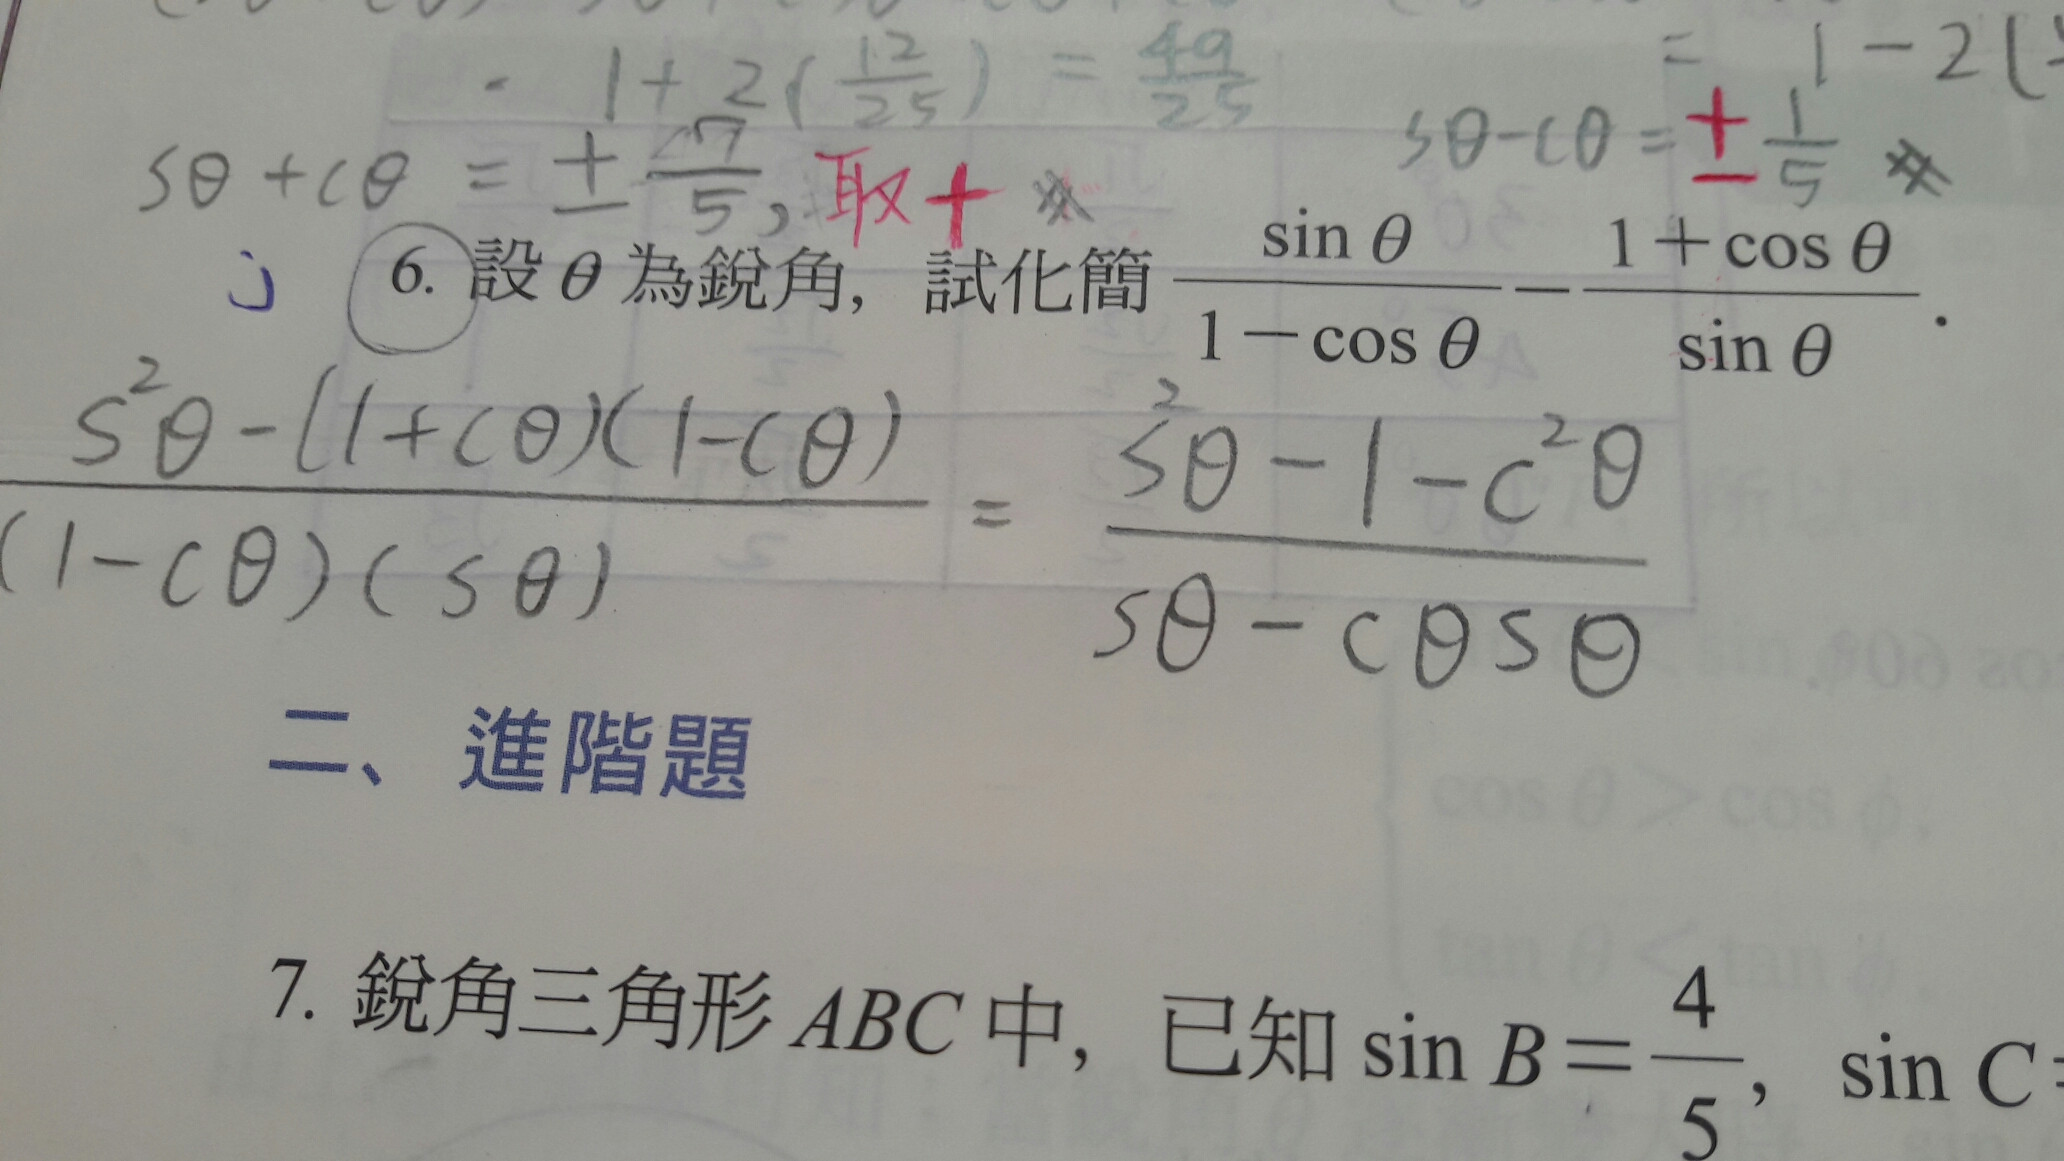 1+2(12/25) = 49/25
= 1-2(
sθ+cθ = ± 7/5, 取+ ※
sθ-cθ = ± 1/5 ※
6. 設 θ 為銳角, 試化簡 sin θ/(1-cos θ) - (1+cos θ)/sin θ .
(s²θ-(1+cθ)(1-cθ))/((1-cθ)(sθ)) = (s²θ-1-c²θ)/(sθ-cθsθ)
二、進階題
7. 銳角三角形 ABC 中, 已知 sin B = 4/5, sin C =